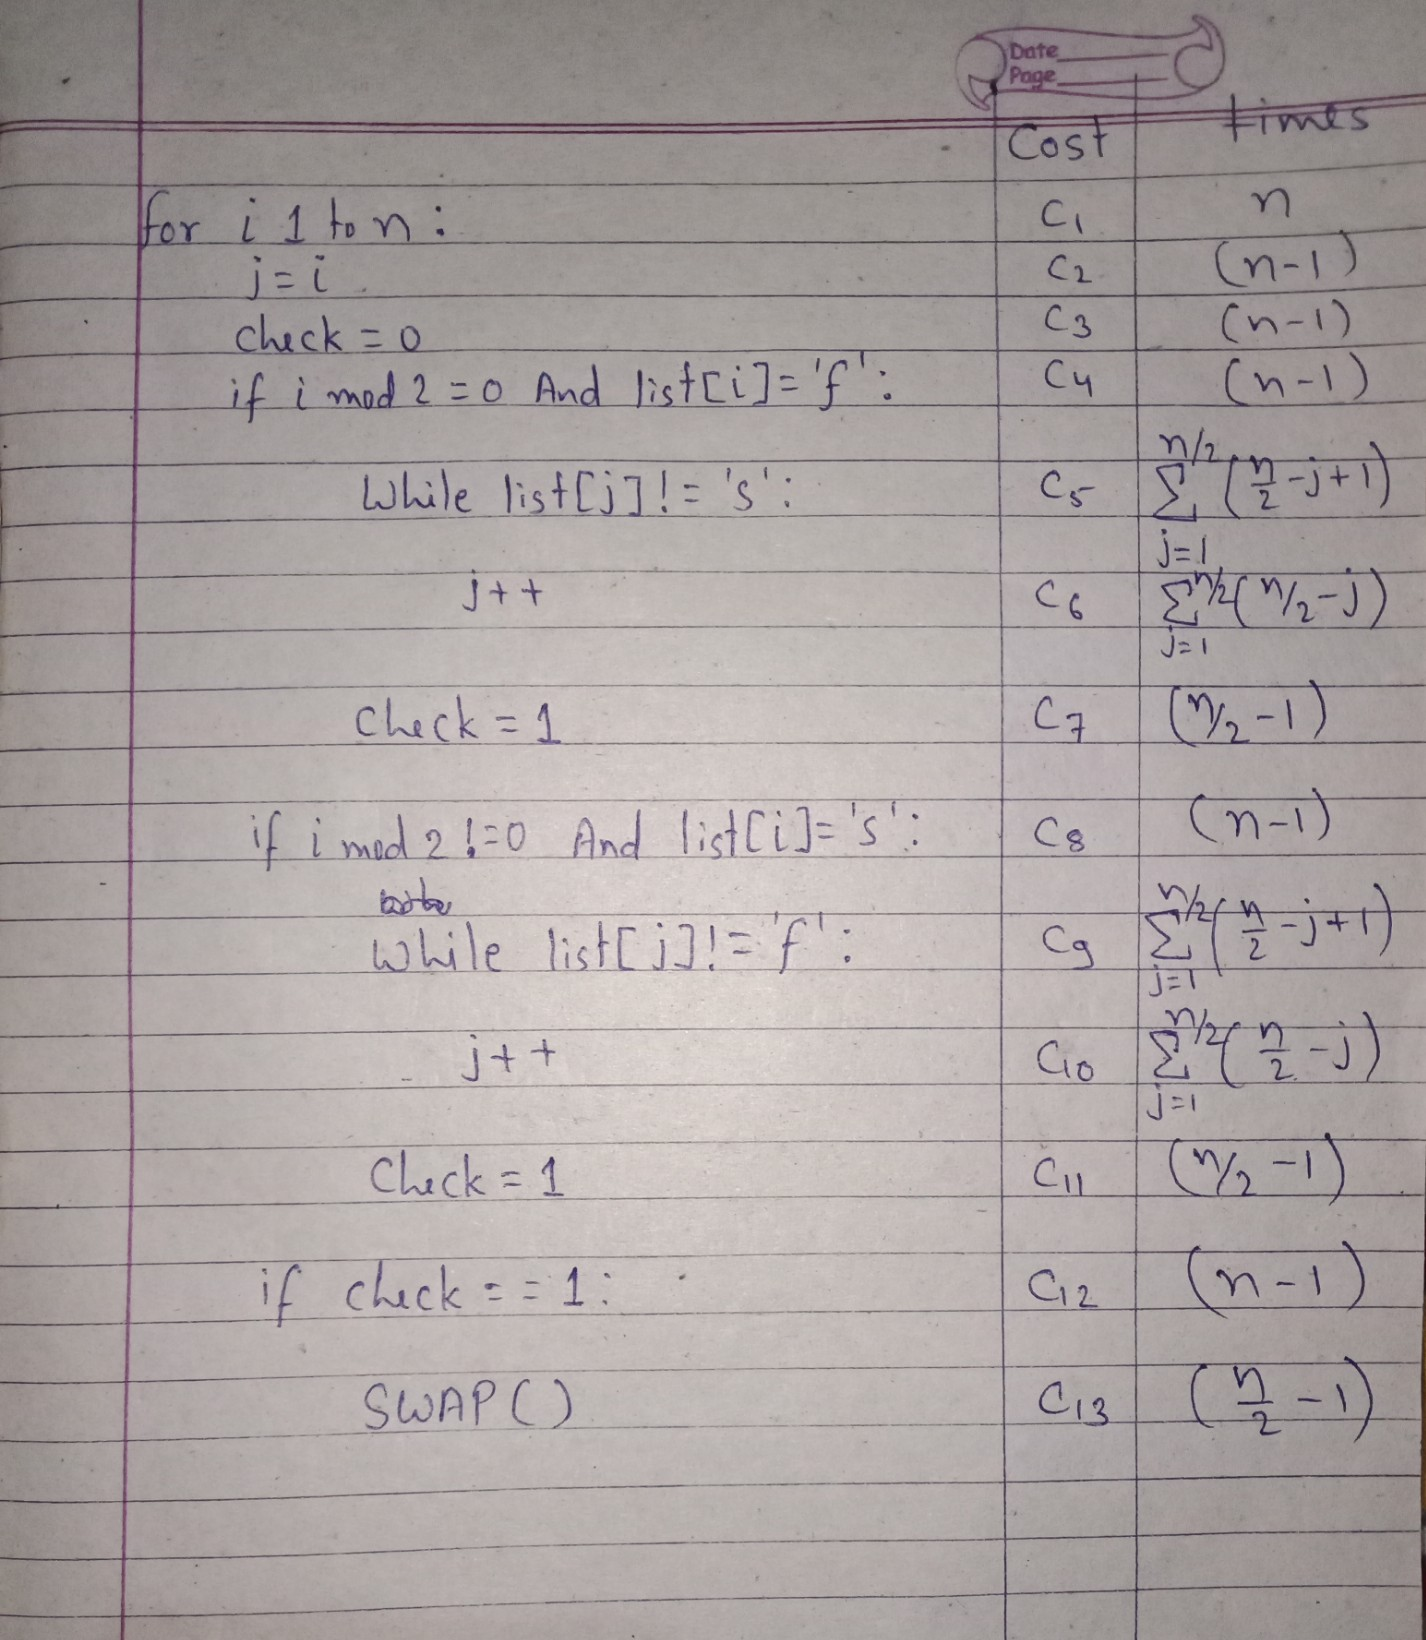 Date
Page
Cost times
for i 1 to n : C1 n
j = i C2 (n-1)
check = 0 C3 (n-1)
if i mod 2 = 0 And list[i] = 'f' : C4 (n-1)
While list[j] != 's' : C5 n/2 Σ j=1 (n/2 - j + 1)
j++ C6 Σ n/2 j=1 (n/2 - j)
Check = 1 C7 (n/2 - 1)
if i mod 2 != 0 And list[i] = 's' : C8 (n-1)
While list[j] != 'f' : C9 n/2 Σ j=1 (n/2 - j + 1)
j++ C10 n/2 Σ j=1 (n/2 - j)
Check = 1 C11 (n/2 - 1)
if check == 1 : C12 (n-1)
SWAP() C13 (n/2 - 1)